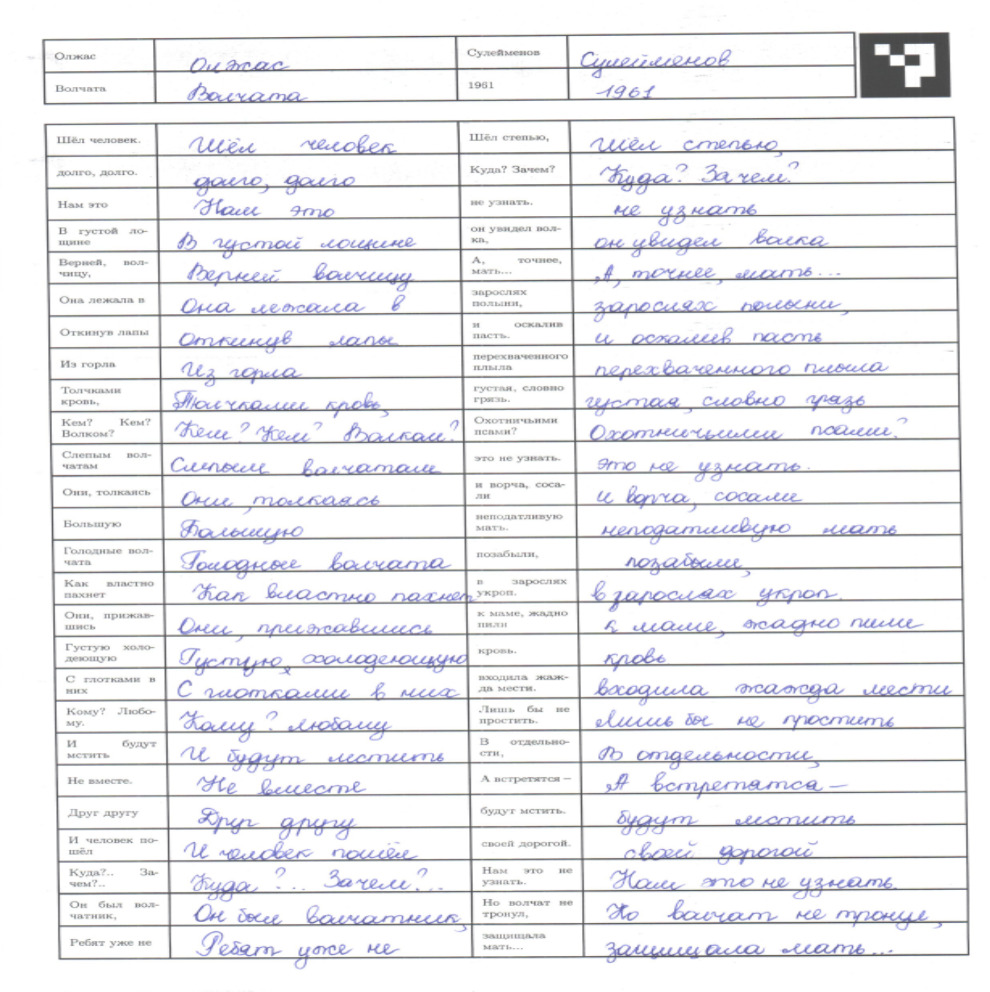 Олжас
Олжас
Сулейменов
Сулейменов
Волчата
Волчата
1961
1961
Шёл человек.
Шёл человек
Шёл степью,
Шёл степью,
долго, долго.
долго, долго
Куда? Зачем?
Куда? Зачем?
Нам это
Нам это
не узнать.
не узнать
В густой ло-
щине
В густой лощине
он увидел вол-
ка,
он увидел волка
Верней, вол-
чицу,
Верней волчицу
А, точнее,
мать...
А, точнее, мать...
Она лежала в
Она лежала в
зарослях
полыни,
зарослях полыни,
Откинув лапы
Откинув лапы
и оскалив
пасть.
и оскалив пасть
Из горла
Из горла
перехваченного
плыла
перехваченного плыла
Толчками
кровь,
Толчками кровь,
густая, словно
грязь.
густая, словно грязь
Кем? Кем?
Волком?
Кем? Кем? Волком?
Охотничьими
псами?
Охотничьими псами?
Слепым вол-
чатам
Слепым волчатам
это не узнать.
это не узнать.
Они, толкаясь
Они, толкаясь
и ворча, соса-
ли
и ворча, сосали
Большую
Большую
неподатливую
мать.
неподатливую мать
Голодные вол-
чата
Голодные волчата
позабыли,
позабыли,
Как властно
пахнет
Как властно пахнет
в зарослях
укроп.
в зарослях укроп.
Они, прижав-
шись
Они, прижавшись
к маме, жадно
пили
к маме, жадно пили
Густую холо-
деющую
Густую, холодеющую
кровь.
кровь
С глотками в
них
С глотками в них
входила жаж-
да мести.
входила жажда мести
Кому? Любо-
му.
Кому? любому
Лишь бы не
простить.
Лишь бы не простить
И будут
мстить
И будут мстить
В отдельно-
сти,
В отдельности,
Не вместе.
Не вместе
А встретятся –
А встретятся –
Друг другу
Друг другу
будут мстить.
будут мстить
И человек по-
шёл
И человек пошёл
своей дорогой.
своей дорогой
Куда?.. За-
чем?..
Куда?.. Зачем?..
Нам это не
узнать.
Нам это не узнать.
Он был вол-
чатник,
Он был волчатник,
Но волчат не
тронул,
Но волчат не тронул,
Ребят уже не
Ребят уже не
защищала
мать...
защищала мать...